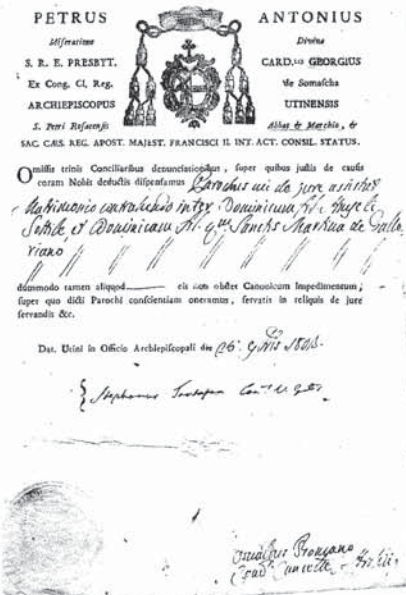 PETRUS ANTONIUS
Miseratione Divina
S. R. E. PRESBYT. CARD.lis GEORGIUS
Ex Cong. Cl. Reg. de Somascha
ARCHIEPISCOPUS UTINENSIS
S. Petri Rosacensis Abbas & Marchio, &
SAC. CÆS. REG. APOST. MAJEST. FRANCISCI II. INT. ACT. CONSIL. STATUS.
Omissis trinis Conciliaribus denunciationibus, super quibus justis de causis
coram Nobis deductis dispensamus Parochus uti de jure assistet
Matrimonio contrahendo inter Dominicum fil. Angeli
et Dominicam fil. qm Sanctis Martina de
riano
dummodo tamen aliquod eis non obstet Canonicum Impedimentum;
super quo dicti Parochi conscientiam oneramus, servatis in reliquis de jure
servandis &c.
Dat. Utini in Officio Archiepiscopali die 26. 9bris
Stephanus